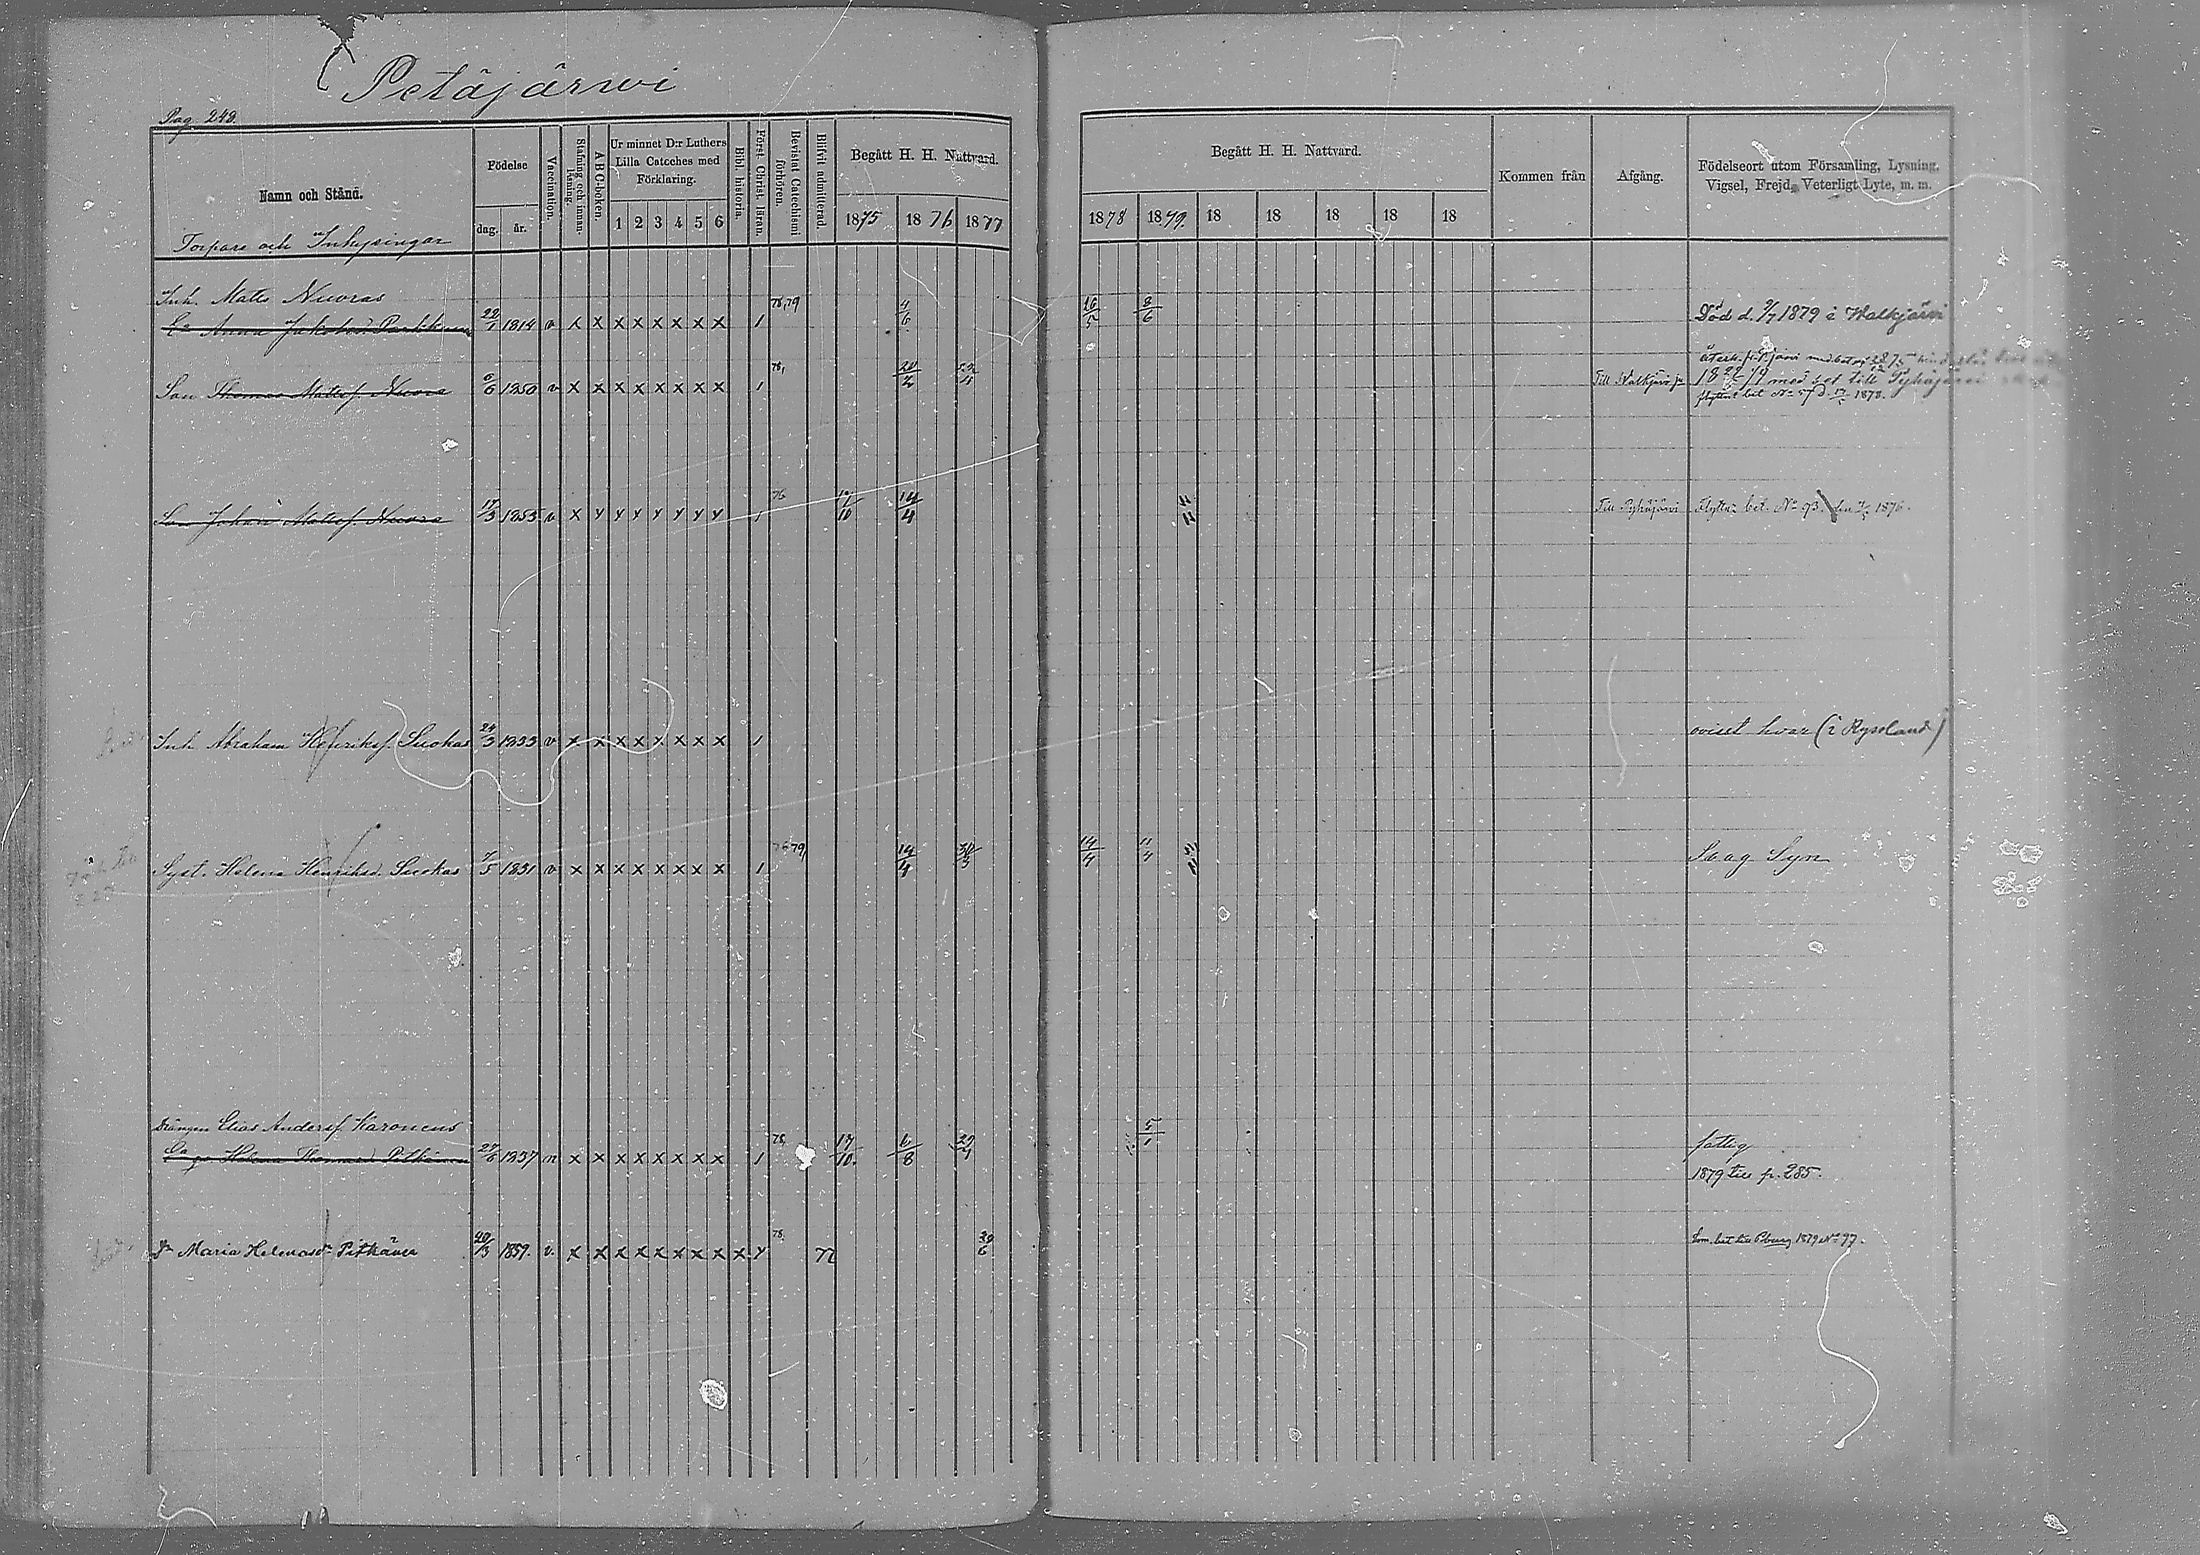 Petäjärwi
Pag. 248.
Namn och Stånd.
Torpare och Inhysingar
Födelse
dag. år.
Vaccination.
Stafning och innanläsning.
A B C-boken.
Ur minnet D:r Luthers Lilla Cateches med Förklaring.
1 2 3 4 5 6
Bibl. historia.
Först. Christ. läran.
Bevistat Catechismi förhören.
Blifvit admitterad.
Begått H. H. Nattvard.
1875 1876 1877
Begått H. H. Nattvard.
1878 1879. 18 18 18 18 18
Kommen från
Afgång.
Födelseort utom Församling, Lysning, Vigsel, Frejd, Veterligt Lyte, m. m.
Inh. Mats Nuoras
Ea Anna Jakobsd 22/1 1814 v x x x x x x x x 1 78,79 4/6 16/5 8/6 Död d. 9/7 1879 i Walkjärvi
Son Thomas Mattsf. Nuora 6/6 1850 v x x x x x x x x 1 78, 20/2 Till Walkjärvi
med bet till Pyhäjärvi
bet No 57 d. 1878.
Son Johan Mattsf. Nuora 17/3 1855. v x y y y y y y y 1 76 17/10 14/4 Till Pyhäjärvi Flyttn. bet. No 93. den 1876.
Inh. Abraham Henriksf. Suokas 24/3 1833 v x x x x x x x x 1 ovisst hvar (i Ryssland)
Syst. Helena Henriksd. Suokas 7/5 1831 v x x x x x x x x 1 76 79 14/4 30/3 14/4 11/4 Svag Syn
Drängen Elias Andersf. Karonens
Ea Helena Thomasd Pitkänen 27/6 1837 n x x x x x x x x 1 78, 17/10. 6/8 29/4 5/1 fattig
1879 till p. 285.
Dr Maria Helenasdr Pitkänen 20/3 1859. v. x x x x x x x x x y 78, 77 30/6 bet till Pburg 1879 No 97.